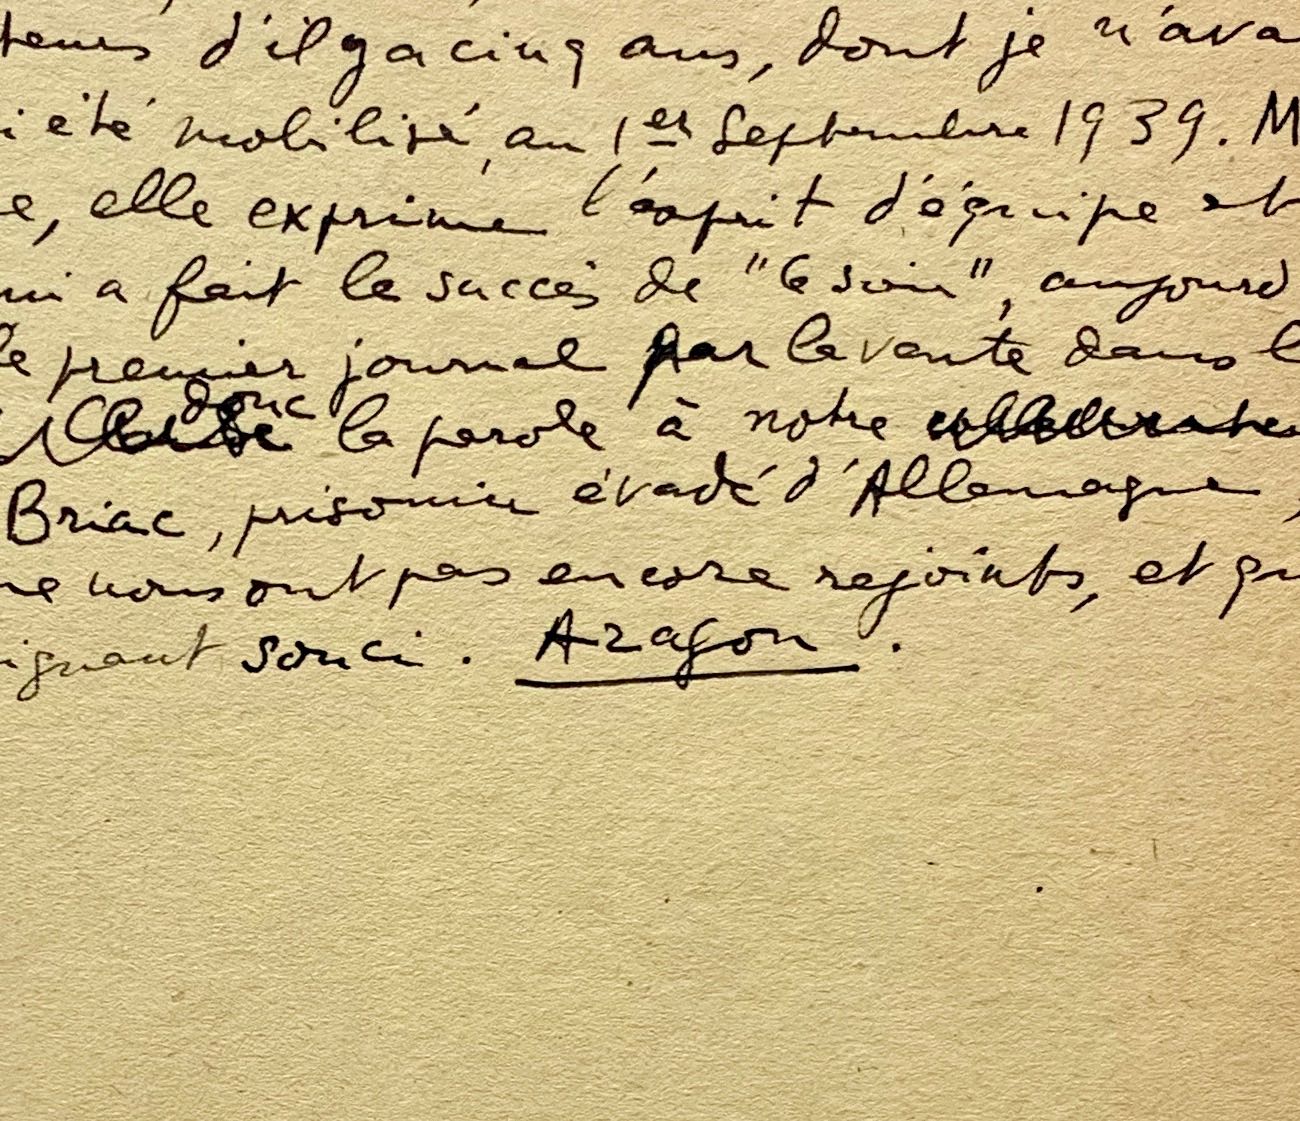 teurs d'il y a cinq ans, dont je n'ava
i été mobilisé, au 1er Septembre 1939. M
e, elle exprime l'esprit d'équipe et
ui a fait le succès de "Ce soir", aujourd
le premier journal par la vente dans l
donc
la parole à notre
Briac, prisonnier évadé d'Allemagne,
ne nous ont pas encore rejoints, et qu
ignant souci. Aragon.